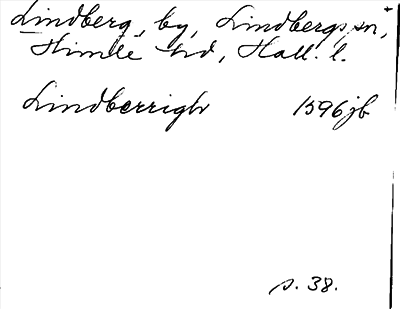 Lindberg, by, Lindbergs sn,
Himle hd, Hall. l.
Lindberrigh 1596 jb
s. 38.